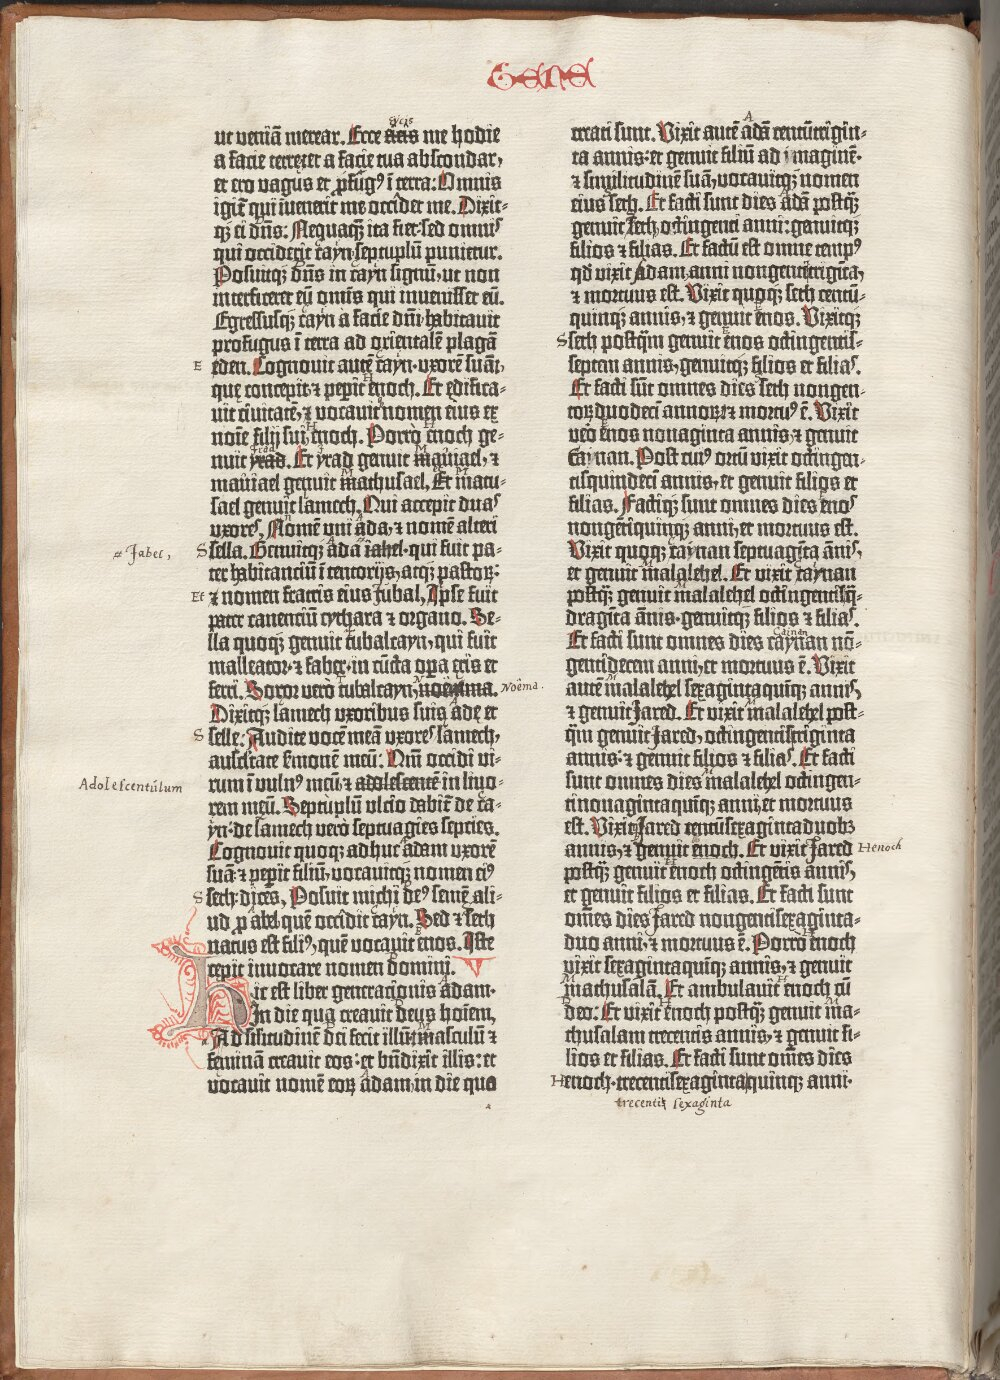 Gene
ut veniā merear. Ecce aīcis me hodie
a facie terre:et a facie tua abscondar,
et ero vagus et ꝓfugꝰ ī terra: Omnis
igit̄ qui īvenerit me occidet me. Dixit-
qꝫ ei dn̄s: Nequaqꝫ̄ ita fiet: sed omnis
qui occiderit cayn septuplū punietur.
Posuitqꝫ dn̄s in cayn signū, ut non
interficeret eū omīs qui invenisset eū.
Egressusqꝫ cayn a facie dn̄i habitavit
profugus ī terra ad orientalē plagā
E eden. Cognovit autē cayn uxorē suā,
que concepit, ⁊ peperit enoch. Et edifica-
vit civitatē, ⁊ vocavit nomen eius ex
noīe filij sui, enoch. Porrò enoch ge-
nuit yrad. Et yrad genuit maviael, ⁊
maviael genuit machusael, Et matu-
sael genuit lamech. Qui accepit duas
uxores, Nomē uni ada, ⁊ nomē alteri
= Jabel, S sella. Genuitqꝫ ada iahel qui fuit pa-
ter habitanciū ī tentorijs, atqꝫ pastorꝝ:
Et ⁊ nomen fratris eius Jubal, Ipse fuit
pater canentiū cythara ⁊ organo. Se-
lla quoqꝫ genuit tubalcayn, qui fuit
malleator ⁊ faber in cūcta opera eris et
ferri. Soror verò tubalcayn, noemma. Noëma.
Dixitqꝫ lamech uxoribus suis ade et
S selle: Audite vocē meā uxores lamech,
auscltate s̄monē meū: Qm̄ occidi vi-
Adolescentulum rum ī vulnꝰ meū: ⁊ adolescentē in livo-
rem meū. Septuplū ulcio dabit̄ de ca-
yn: de lamech verò septuagies septies.
Cognovit quoqꝫ adhuc adam uxorē
suā: ⁊ peperit filiū, vocavitqꝫ nomen eiꝰ
S seth: dicēs, Posuit michi deꝰ semē ali-
ud ꝓ abel quē occidit cayn. Sed ⁊ seth
natus est filiꝰ, quē vocavit enos. Iste
cepit invocare nomen domini. V
Hic est liber generationis adam.
In die qua creavit deus hoīem,
Ad sīlitudinē dei fecit illū: masculū ⁊
feminā creavit eos: et bn̄dixit illis: et
vocavit nomē eorꝝ adam, in die quo
creati sunt. Vixit autē adā centūtrigin-
ta annis: et genuit filiū ad ymaginē
⁊ similitudinē suā, vocavitqꝫ nomen
eius seth. Et facti sunt dies adā postqꝫ̄
genuit seth, octingenti anni: genuitqꝫ
filios ⁊ filias. Et factū est omne tempꝰ
qd̄ vixit Adam, anni nongentitrigīta,
⁊ mortuus est. Vixit quoqꝫ seth centū-
quinqꝫ annis, ⁊ genuit enos. Vixitqꝫ
S seth postqꝫ̄m genuit enos octingentis-
septem annis, genuitqꝫ filios et filias.
Et facti sūt omnes dies seth nongen-
torꝝduodecī annorꝝ, ⁊ mortuꝰ ē. Vixit
verò enos nonaginta annis, ⁊ genuit
Caynan. Post cuiꝰ ortū vixit octingen-
tisquindecī annis, et genuit filios et
filias. Factiqꝫ sunt omnes dies enos
nongētiquinqꝫ anni, et mortuus est.
Vixit quoqꝫ caynan septuagīta ānis,
et genuit malalehel. Et vixit caynan
postqꝫ̄ genuit malalehel octingentisq̄-
dragīta ānis, genuitqꝫ filios ⁊ filias.
Et facti sunt omnes dies caynan nō-
gentidecem anni, et mortuus ē. Vixit
autē malalehel sexagintaquinqꝫ annis,
⁊ genuit Jared. Et vixit malalehel post-
qꝫ̄m genuit Jared, octingentistriginta
annis: ⁊ genuit filios ⁊ filias. Et facti
sunt omnes dies malalehel octingen-
tinonagintaquinqꝫ anni, et mortuus
est. Vixitqꝫ Jared centūsexagintaduobꝫ
annis, ⁊ genuit enoch. Et vixit Jared Henoch
postqꝫ̄ genuit enoch octingētis annis,
et genuit filios et filias. Et facti sunt
om̄es dies Jared nongentisexaginta-
duo anni, ⁊ mortuus ē. Porrò enoch
vixit sexagintaquinqꝫ annis, ⁊ genuit
machusalā, Et ambulavit enoch cū
deo: Et vixit enoch postqꝫ̄ genuit ma-
chusalam trecentis annis, ⁊ genuit fi-
lios et filias. Et facti sunt om̄es dies
Henoch trecentisexagintaquinqꝫ anni.
trecenti sexaginta